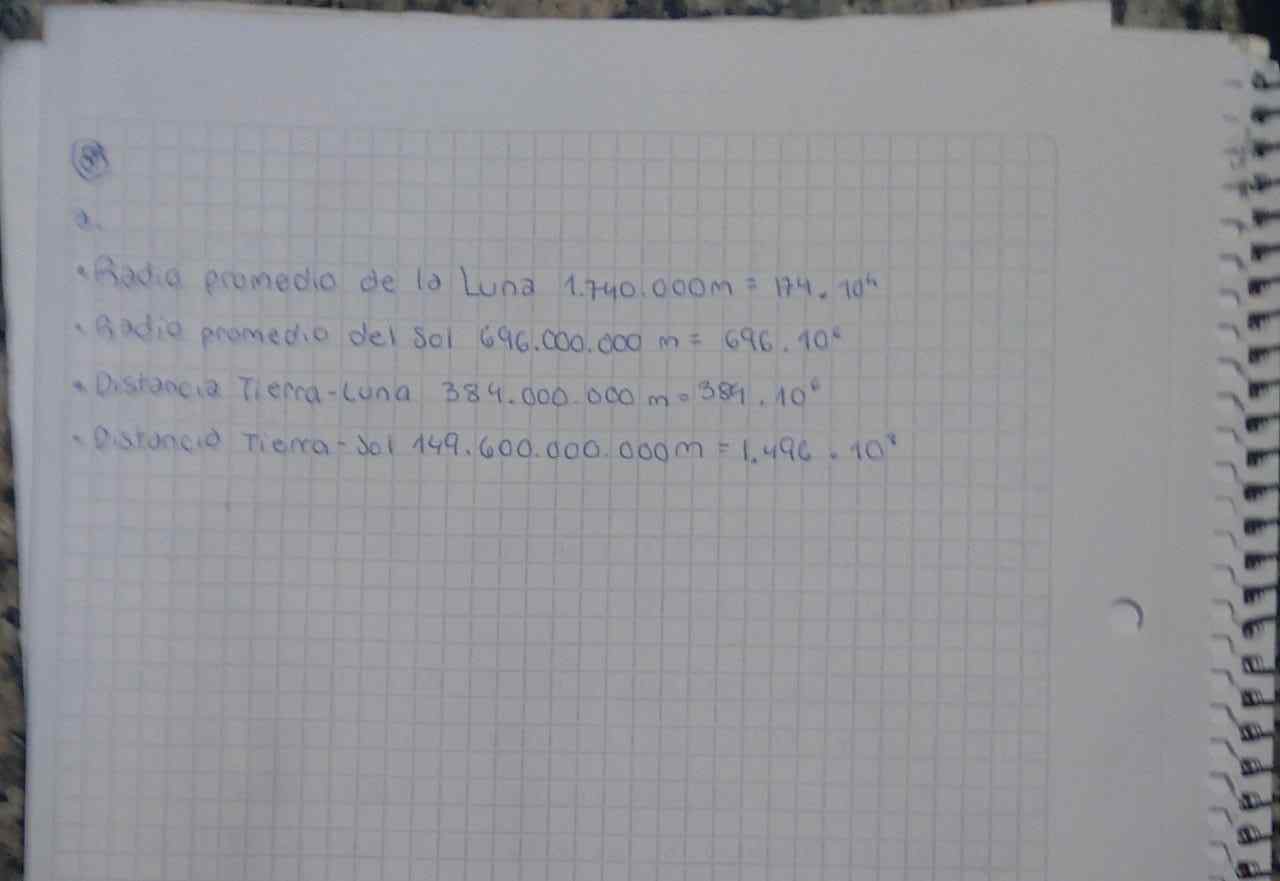 a.
• Radio promedio de la Luna 1.740.000m = 174 . 10⁴
• Radio promedio del Sol 696.000.000 m = 696 . 10⁶
• Distancia Tierra-Luna 384.000.000 m = 384 . 10⁶
• Distancia Tierra-Sol 149.600.000.000m = 1.496 . 10⁸